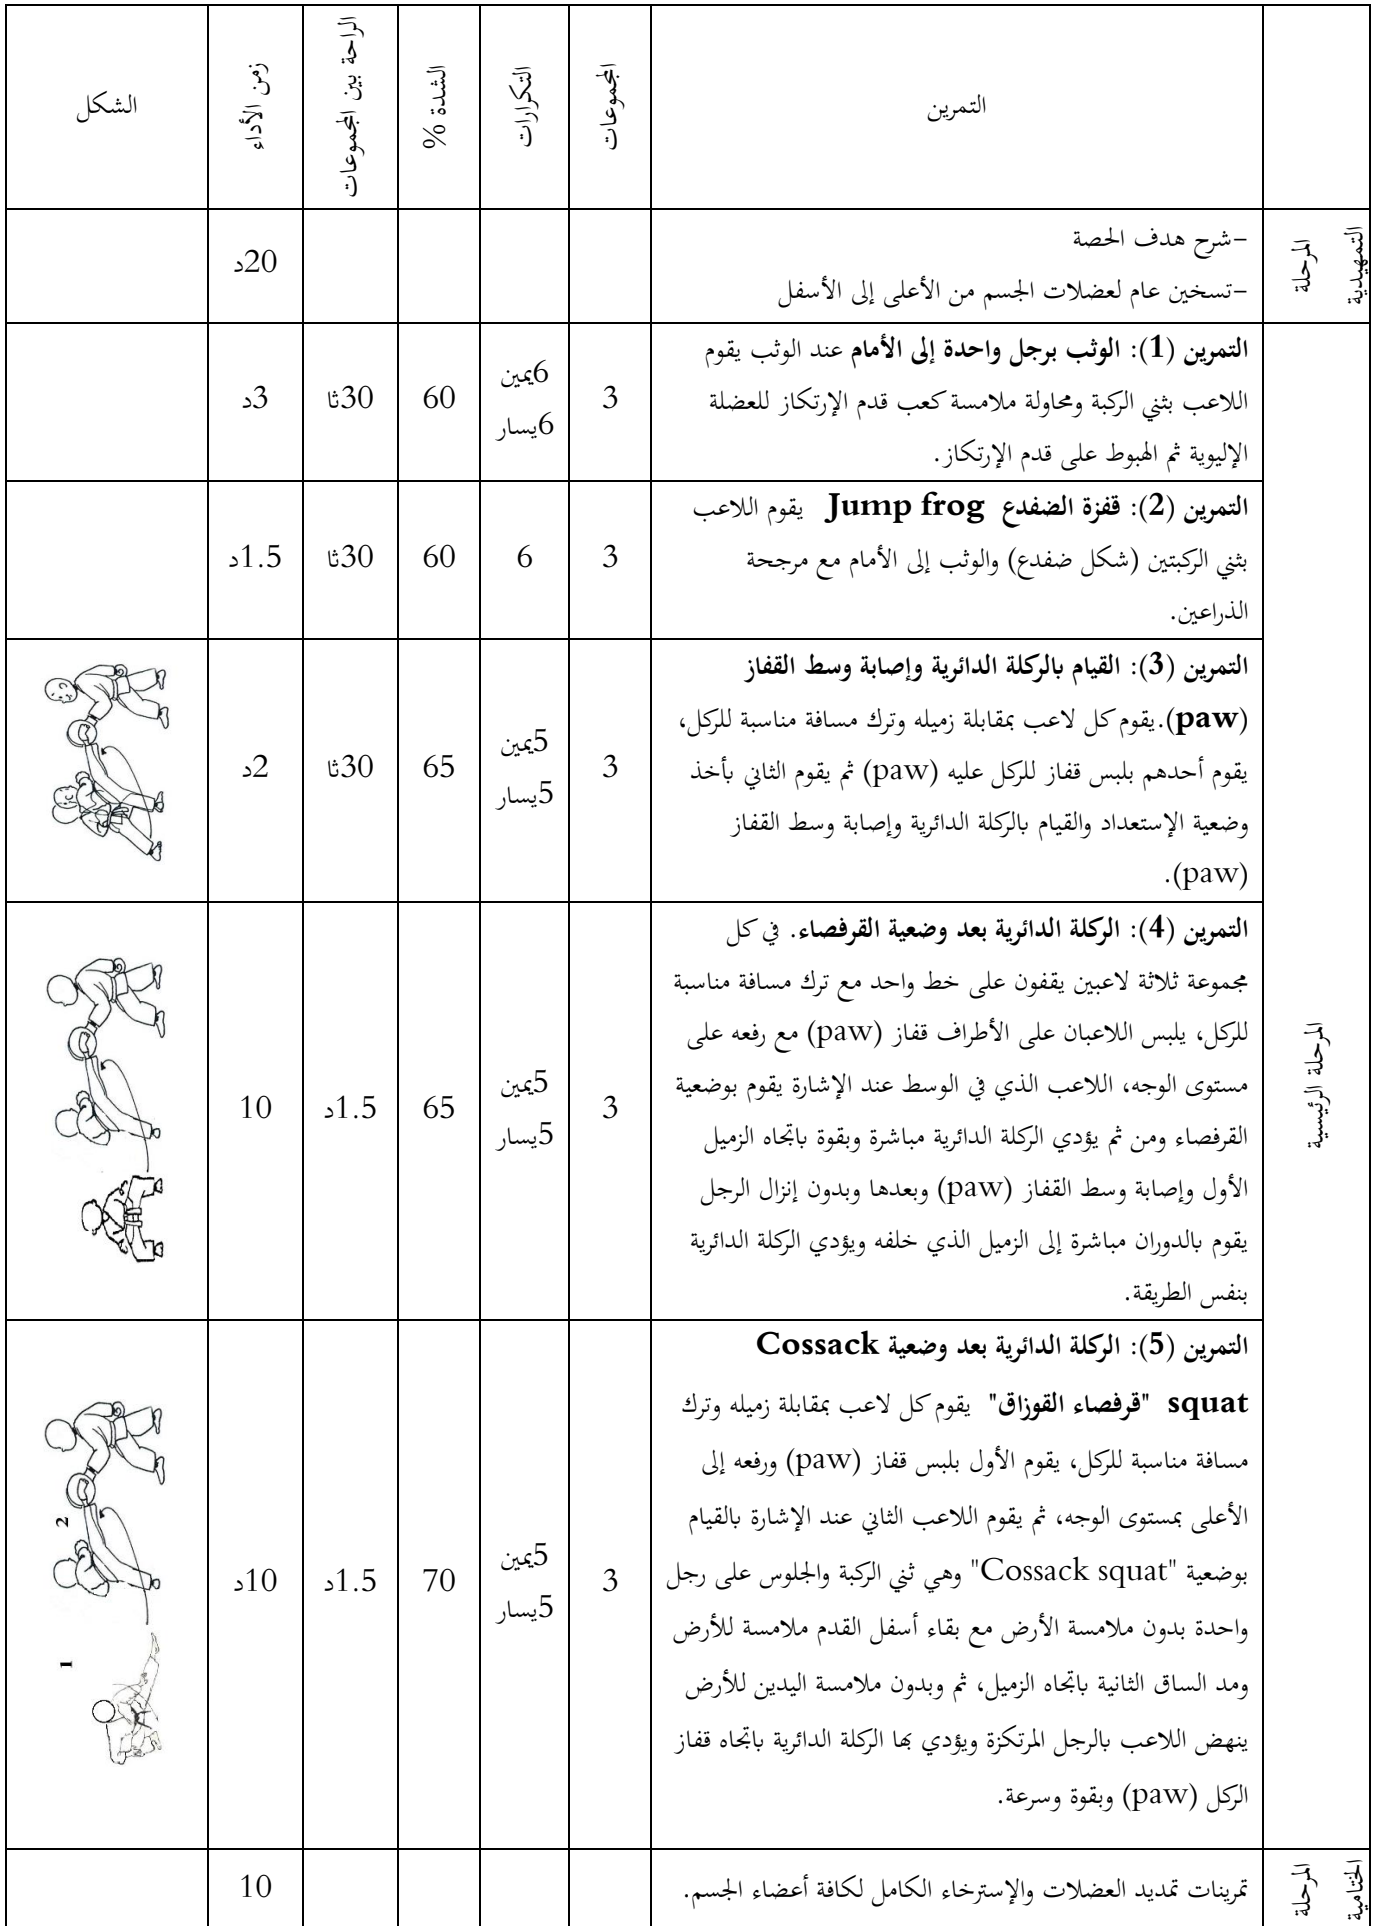 التمرين
المجموعات
التكرارات
الشدة %
الراحة بين المجموعات
زمن الأداء
الشكل
المرحلة
التمهيدية
-شرح هدف الحصة
-تسخين عام لعضلات الجسم من الأعلى إلى الأسفل
20د
المرحلة الرئيسية
التمرين (1): الوثب برجل واحدة إلى الأمام عند الوثب يقوم
اللاعب بثني الركبة ومحاولة ملامسة كعب قدم الإرتكاز للعضلة
الإليوية ثم الهبوط على قدم الإرتكاز.
3
6يمين
6يسار
60
30ثا
3د
التمرين (2): قفزة الضفدع Jump frog يقوم اللاعب
بثني الركبتين (شكل ضفدع) والوثب إلى الأمام مع مرجحة
الذراعين.
3
6
60
30ثا
1.5د
التمرين (3): القيام بالركلة الدائرية وإصابة وسط القفاز
(paw).يقوم كل لاعب بمقابلة زميله وترك مسافة مناسبة للركل،
يقوم أحدهم بلبس قفاز للركل عليه (paw) ثم يقوم الثاني بأخذ
وضعية الإستعداد والقيام بالركلة الدائرية وإصابة وسط القفاز
(paw).
3
5يمين
5يسار
65
30ثا
2د
التمرين (4): الركلة الدائرية بعد وضعية القرفصاء. في كل
مجموعة ثلاثة لاعبين يقفون على خط واحد مع ترك مسافة مناسبة
للركل، يلبس اللاعبان على الأطراف قفاز (paw) مع رفعه على
مستوى الوجه، اللاعب الذي في الوسط عند الإشارة يقوم بوضعية
القرفصاء ومن ثم يؤدي الركلة الدائرية مباشرة وبقوة باتجاه الزميل
الأول وإصابة وسط القفاز (paw) وبعدها وبدون إنزال الرجل
يقوم بالدوران مباشرة إلى الزميل الذي خلفه ويؤدي الركلة الدائرية
بنفس الطريقة.
3
5يمين
5يسار
65
1.5د
10
التمرين (5): الركلة الدائرية بعد وضعية Cossack
squat "قرفصاء القوزاق" يقوم كل لاعب بمقابلة زميله وترك
مسافة مناسبة للركل، يقوم الأول بلبس قفاز (paw) ورفعه إلى
الأعلى بمستوى الوجه، ثم يقوم اللاعب الثاني عند الإشارة بالقيام
بوضعية "Cossack squat" وهي ثني الركبة والجلوس على رجل
واحدة بدون ملامسة الأرض مع بقاء أسفل القدم ملامسة للأرض
ومد الساق الثانية باتجاه الزميل، ثم وبدون ملامسة اليدين للأرض
ينهض اللاعب بالرجل المرتكزة ويؤدي بها الركلة الدائرية باتجاه قفاز
الركل (paw) وبقوة وسرعة.
3
5يمين
5يسار
70
1.5د
10د
2
1
المرحلة
الختامية
تمرينات تمديد العضلات والإسترخاء الكامل لكافة أعضاء الجسم.
10